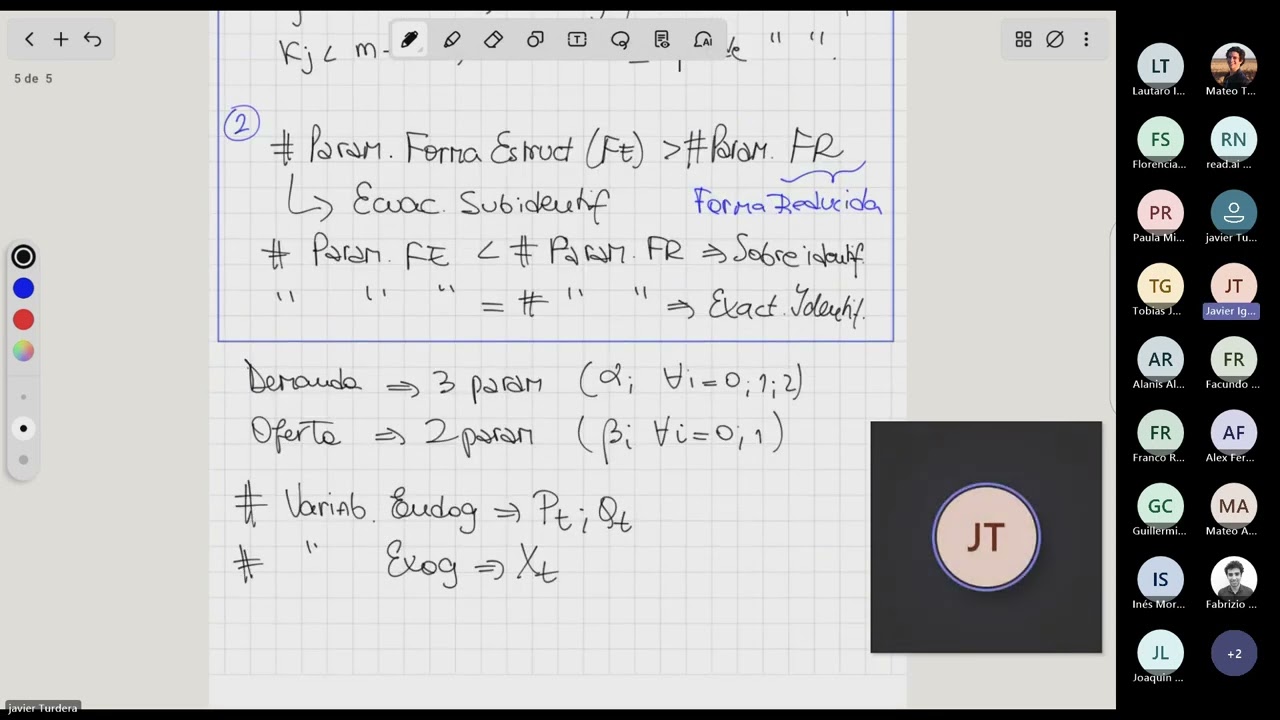 5 de 5
Kj < m -
" ".
2
# Param. Forma Estruct (FE) > # Param. FR
↳ Ecuac. Subidentif
Forma Reducida
# Param. FE < # Param. FR ⇒ Sobreidentif.
" " " = # " " ⇒ Exact. Identif.
Demanda ⇒ 3 param (αi ∀i=0;1;2)
Oferta ⇒ 2 param (βi ∀i=0;1)
# Variab. Endog ⇒ Pt ; Qt
# " Exog ⇒ Xt
JT
javier Turdera
LT
Lautaro I...
Mateo T...
FS
Florencia...
RN
read.ai ...
PR
Paula Mi...
javier Tu...
TG
Tobias J...
JT
Javier Ig...
AR
Alanis Al...
FR
Facundo ...
FR
Franco R...
AF
Alex Fer...
GC
Guillermi...
MA
Mateo A...
IS
Inés Mor...
Fabrizio ...
JL
Joaquin ...
+2